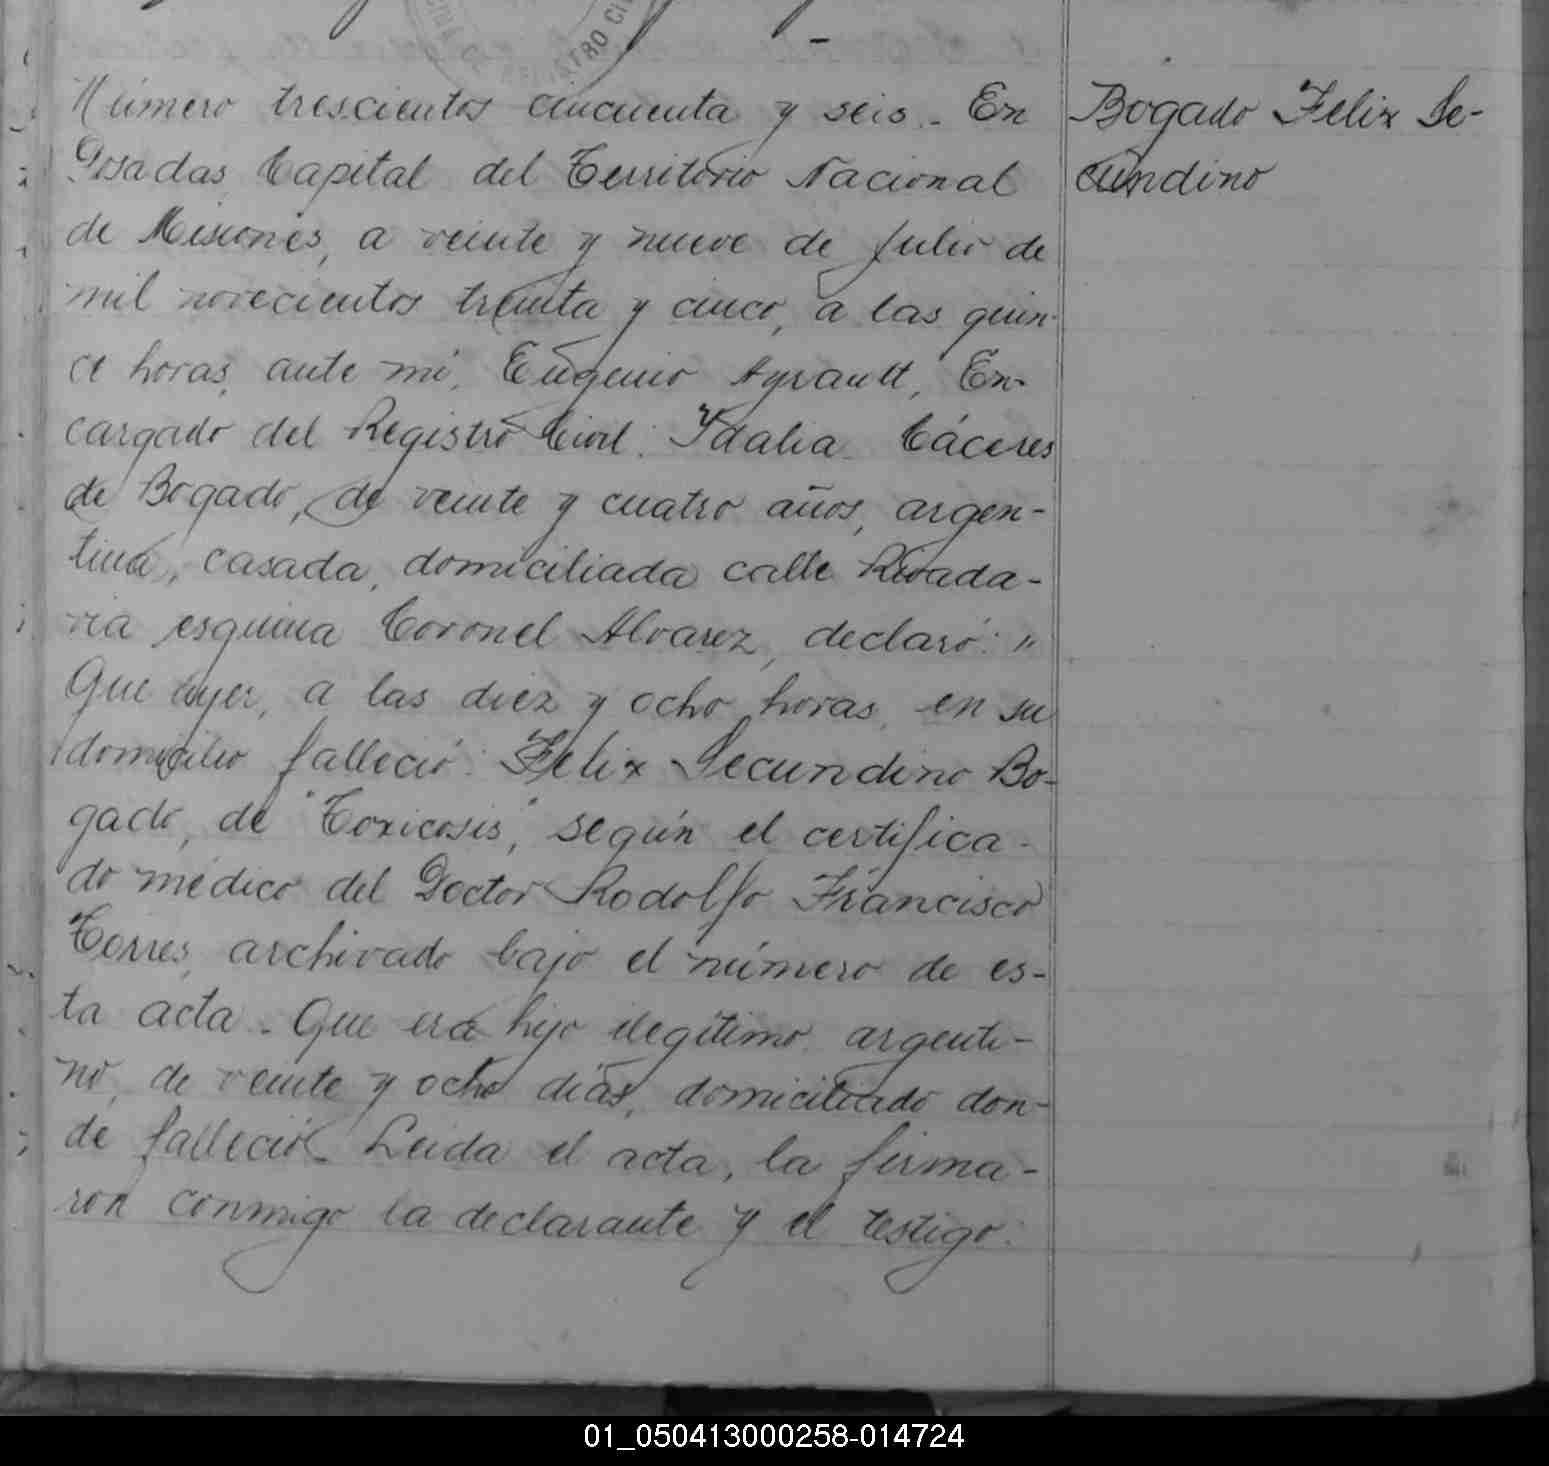 Número trescientos cincuenta y seis.- En
Posadas Capital del Territorio Nacional
de Misiones, a veinte y nueve de Julio de
mil novecientos treinta y cinco, a las quin-
ce horas, ante mí, Eugenio Ayrault, En-
cargado del Registro Civil: Ydalia Cáceres
de Bogado, de veinte y cuatro años, argen-
tina, casada, domiciliada calle Rivada-
via esquina Coronel Alvarez, declaró: "
Que ayer, a las diez y ocho horas, en su
domicilio falleció: Felix Secundino Bo-
gado, de "Toxicosis", según el certifica-
do médico del Doctor Rodolfo Francisco
Torres, archivado bajo el número de es-
ta acta.- Que era hijo ilegítimo, argenti-
no, de veinte y ocho días, domiciliado don-
de falleció.- Leida el acta, la firma-
ron conmigo la declarante y el testigo.
Bogado Felix Se-
cundino
REGISTRO CI
01_050413000258-014724